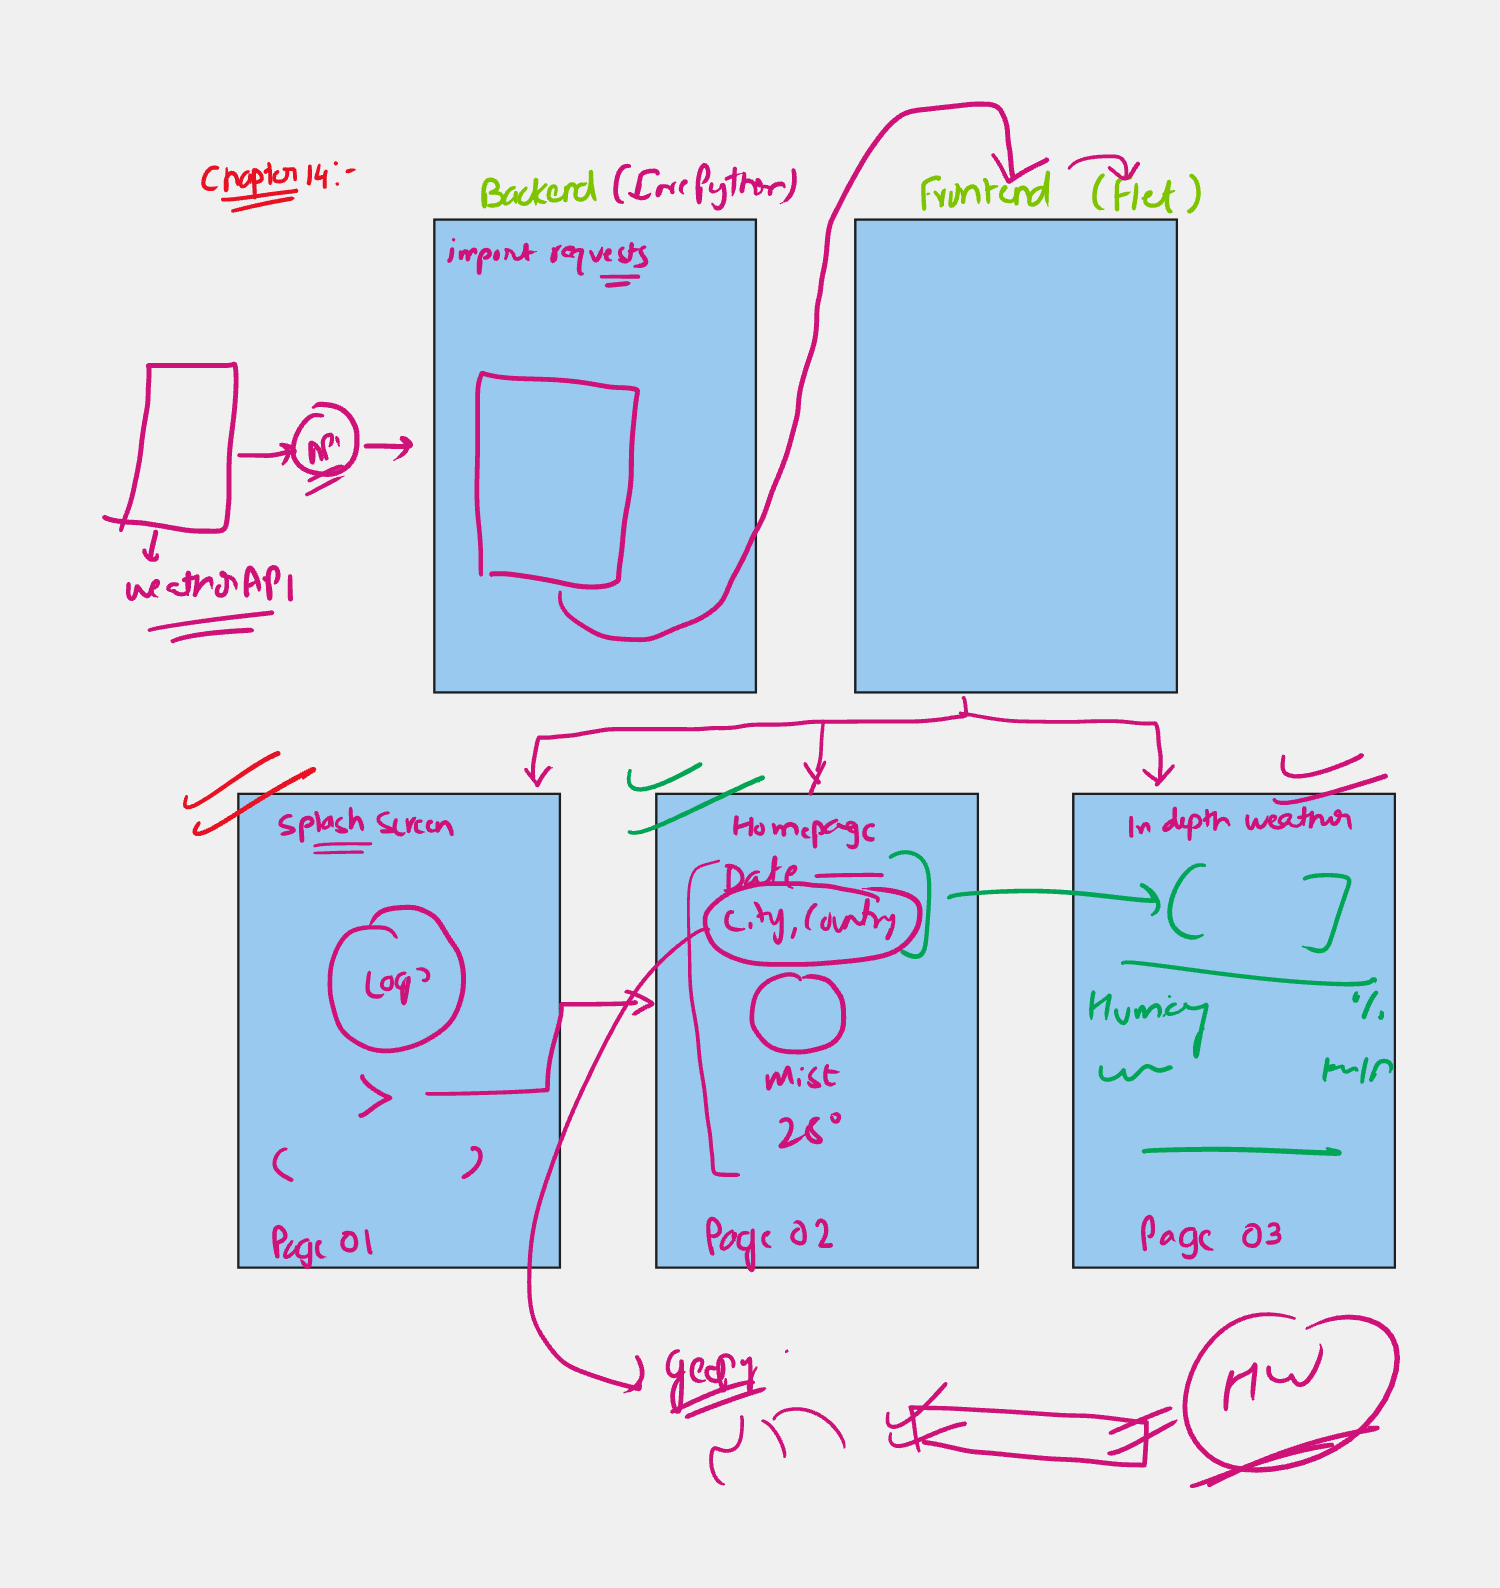 Chapter 14:-
Backend (Core Python)
Frontend (Flet)
import requests
API
weatherAPI
Splash Screen
Logo
>
( )
Page 01
Homepage
Date
City, Country
Mist
28°
Page 02
In depth weather
( ]
%
Page 03
geopy
HW